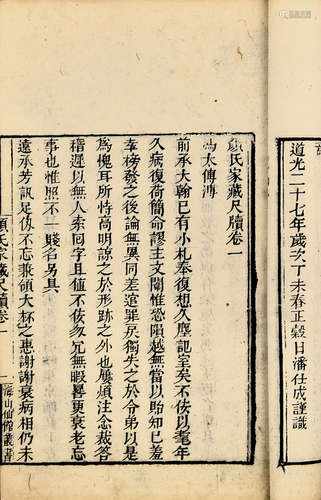 道光二十七年歲次丁未春正穀日潘仕成謹識
顏氏家藏尺牘卷一
馮太傅溥
前承大翰已有小札奉復想久塵記室矣不佞以耄年
久病復荷簡命謬主文闈惟恐隕越無當以貽知己羞
幸榜發之後論無異同差逭罪戾獨失之於令弟以是
為愧耳所恃高明諒之於形跡之外也屢頻注念裁答
稽遲以無人索回字且值不佞匆冗無暇晷更衰老忘
事也惟照不一賤名另具
遠承芳訊足徵不忘兼領大杯之惠謝謝衰病相仍未
顏氏家藏尺牘卷一
一
海山仙館叢書